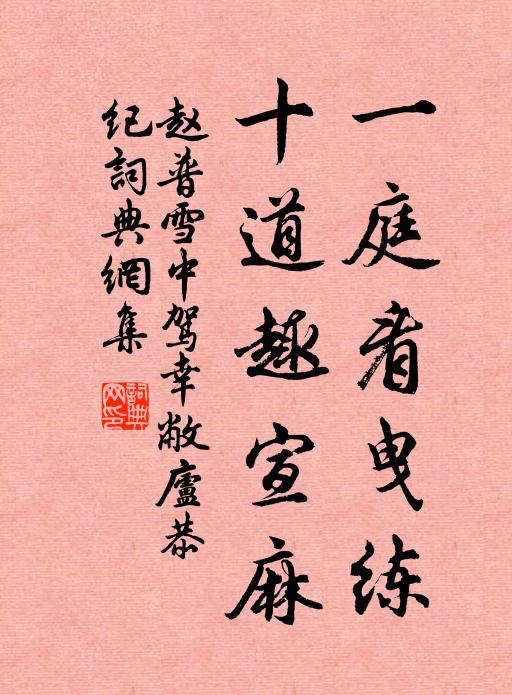 一庭看曳练
十道趣宣麻
赵普雪中驾幸敝廬恭
纪詞典網集
詞典网印